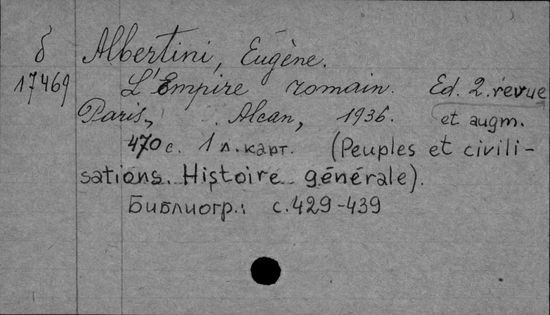 б Albertini, Eugène.
17469 L'Empire romain. Ed. 2. revue
Paris, Alcan, 1936. et augm.
470 с. 1 л. карт. (Peuples et civili-
sations. Histoire générale).
Библиогр.: с. 429-439